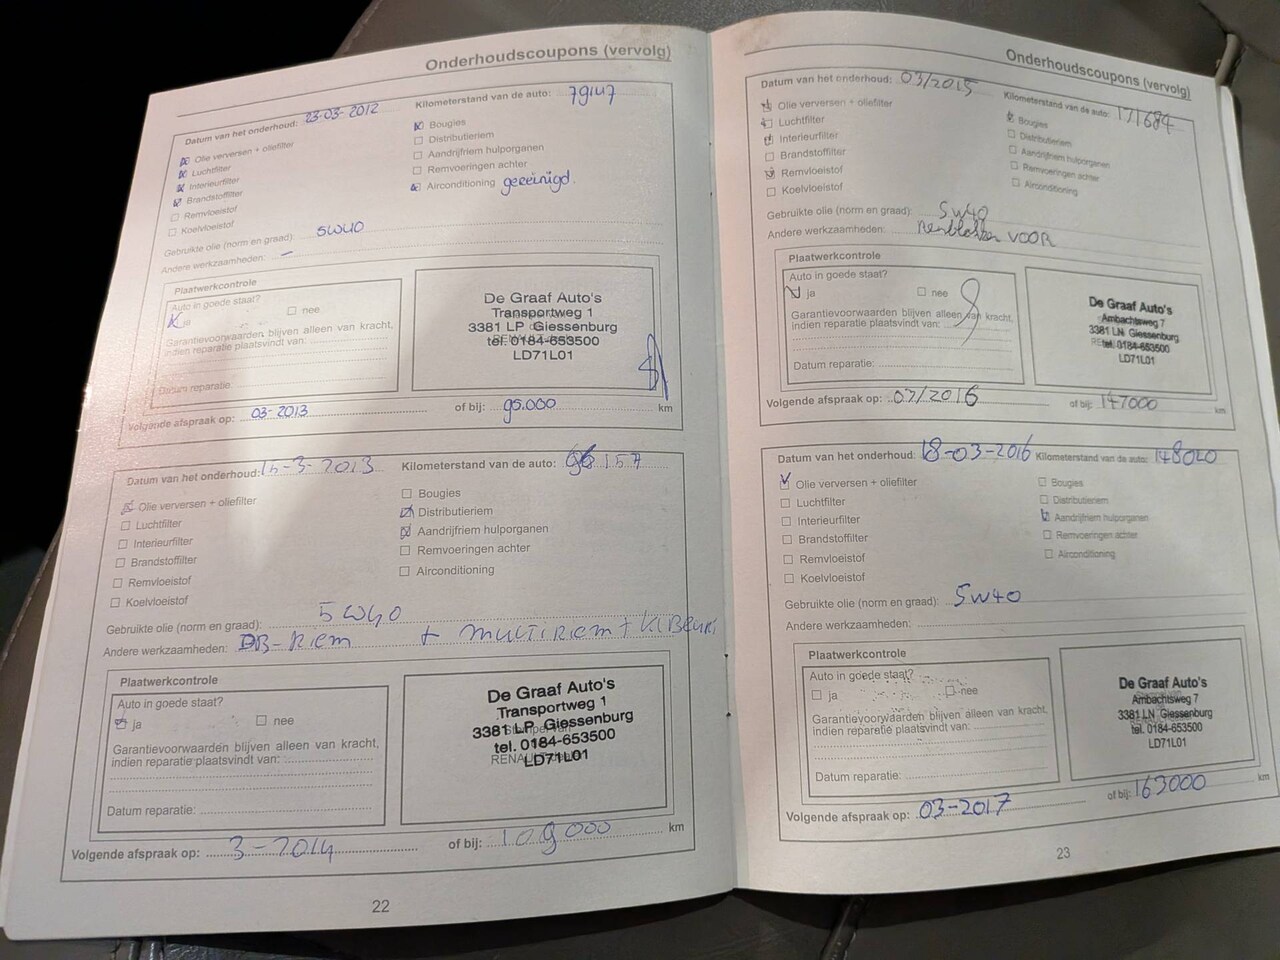 Onderhoudscoupons (vervolg)
Datum van het onderhoud: 23-03-2012 Kilometerstand van de auto: 79147
Olie verversen + oliefilter
Luchtfilter
Interieurfilter
Brandstoffilter
Remvloeistof
Koelvloeistof
Bougies
Distributieriem
Aandrijfriem hulporganen
Remvoeringen achter
Airconditioning gereinigd.
Gebruikte olie (norm en graad): 5W40
Andere werkzaamheden: -
Plaatwerkcontrole
Auto in goede staat?
ja nee
Garantievoorwaarden blijven alleen van kracht,
indien reparatie plaatsvindt van:
Datum reparatie:
De Graaf Auto's
Transportweg 1
3381 LP Giessenburg
tel. 0184-653500
LD71L01
Volgende afspraak op: 03-2013 of bij: 95.000 km
Datum van het onderhoud: 15-3-2013 Kilometerstand van de auto: 157
Olie verversen + oliefilter
Luchtfilter
Interieurfilter
Brandstoffilter
Remvloeistof
Koelvloeistof
Bougies
Distributieriem
Aandrijfriem hulporganen
Remvoeringen achter
Airconditioning
Gebruikte olie (norm en graad): 5W40
Andere werkzaamheden: DB-Riem + multiriem +
Plaatwerkcontrole
Auto in goede staat?
ja nee
Garantievoorwaarden blijven alleen van kracht,
indien reparatie plaatsvindt van:
Datum reparatie:
De Graaf Auto's
Transportweg 1
3381 LP Giessenburg
tel. 0184-653500
LD71L01
Volgende afspraak op: 3-2014 of bij: 109000 km
22
Onderhoudscoupons (vervolg)
Datum van het onderhoud: 03/2015 Kilometerstand van de auto:
Olie verversen + oliefilter
Luchtfilter
Interieurfilter
Brandstoffilter
Remvloeistof
Koelvloeistof
Bougies
Distributieriem
Aandrijfriem hulporganen
Remvoeringen achter
Airconditioning
Gebruikte olie (norm en graad): 5W40
Andere werkzaamheden: Remblokken VOOR
Plaatwerkcontrole
Auto in goede staat?
ja nee
Garantievoorwaarden blijven alleen van kracht,
indien reparatie plaatsvindt van:
Datum reparatie:
De Graaf Auto's
Ambachtsweg 7
3381 LN Giessenburg
tel. 0184-653500
LD71L01
Volgende afspraak op: 03/2016 of bij: 147000 km
Datum van het onderhoud: 18-03-2016 Kilometerstand van de auto: 148020
Olie verversen + oliefilter
Luchtfilter
Interieurfilter
Brandstoffilter
Remvloeistof
Koelvloeistof
Bougies
Distributieriem
Aandrijfriem hulporganen
Remvoeringen achter
Airconditioning
Gebruikte olie (norm en graad): 5W40
Andere werkzaamheden:
Plaatwerkcontrole
Auto in goede staat?
ja nee
Garantievoorwaarden blijven alleen van kracht,
indien reparatie plaatsvindt van:
Datum reparatie:
De Graaf Auto's
Ambachtsweg 7
3381 LN Giessenburg
tel. 0184-653500
LD71L01
Volgende afspraak op: 03-2017 of bij: 163000 km
23